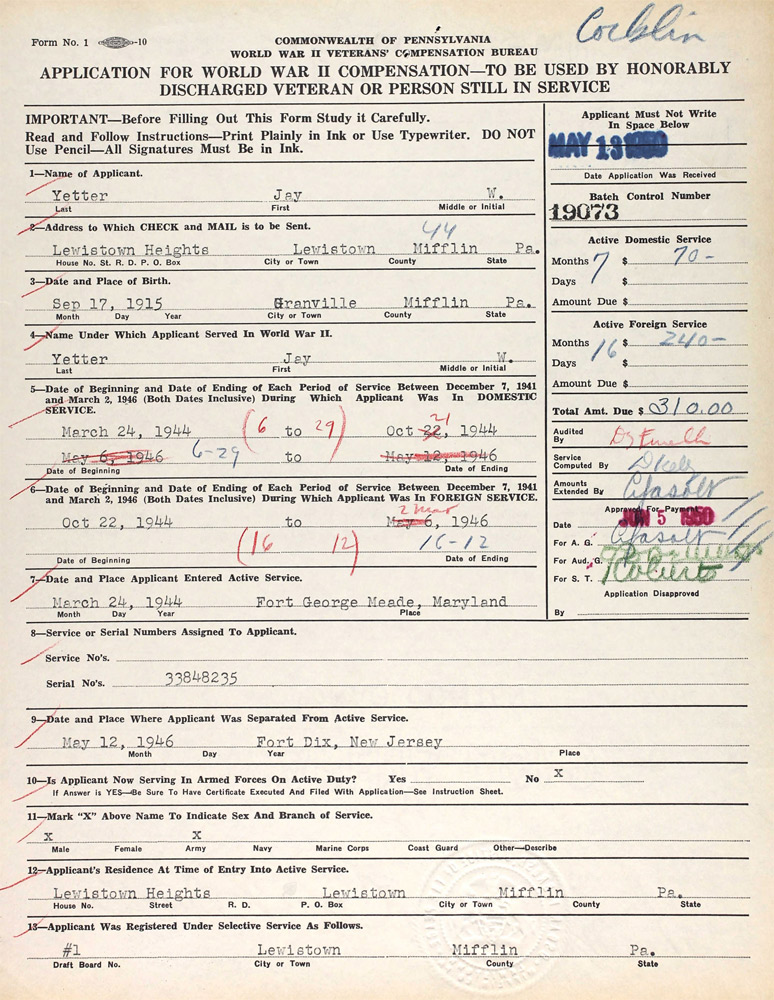 Form No. 1 -10
COMMONWEALTH OF PENNSYLVANIA
WORLD WAR II VETERANS' COMPENSATION BUREAU
APPLICATION FOR WORLD WAR II COMPENSATION—TO BE USED BY HONORABLY
DISCHARGED VETERAN OR PERSON STILL IN SERVICE
IMPORTANT—Before Filling Out This Form Study it Carefully.
Read and Follow Instructions—Print Plainly in Ink or Use Typewriter. DO NOT
Use Pencil—All Signatures Must Be in Ink.
1—Name of Applicant.
Yetter Jay W.
Last First Middle or Initial
2—Address to Which CHECK and MAIL is to be Sent.
44
Lewistown Heights Lewistown Mifflin Pa.
House No. St. R. D. P. O. Box City or Town County State
3—Date and Place of Birth.
Sep 17, 1915 Granville Mifflin Pa.
Month Day Year City or Town County State
4—Name Under Which Applicant Served In World War II.
Yetter Jay W.
Last First Middle or Initial
5—Date of Beginning and Date of Ending of Each Period of Service Between December 7, 1941
and March 2, 1946 (Both Dates Inclusive) During Which Applicant Was In DOMESTIC
SERVICE.
21
March 24, 1944 (6 to 29) Oct 22, 1944
May 6, 1946 6-29 to May 12, 1946
Date of Beginning Date of Ending
6—Date of Beginning and Date of Ending of Each Period of Service Between December 7, 1941
and March 2, 1946 (Both Dates Inclusive) During Which Applicant Was In FOREIGN SERVICE.
2 Mar
Oct 22, 1944 to May 6, 1946
(16 12) 16-12
Date of Beginning Date of Ending
7—Date and Place Applicant Entered Active Service.
March 24, 1944 Fort George Meade, Maryland
Month Day Year Place
Applicant Must Not Write
In Space Below
MAY 13 1950
Date Application Was Received
Batch Control Number
19073
Active Domestic Service
Months 7 $ 70-
Days $
Amount Due $
Active Foreign Service
Months 16 $ 240-
Days $
Amount Due $
Total Amt. Due $ 310.00
Audited
By
Service
Computed By
Amounts
Extended By
Approved For Payment
Date JUN 5 1950
For A. G.
For Aud. G.
For S. T.
Application Disapproved
By
8—Service or Serial Numbers Assigned To Applicant.
Service No's.
Serial No's. 33848235
9—Date and Place Where Applicant Was Separated From Active Service.
May 12, 1946 Fort Dix, New Jersey
Month Day Year Place
10—Is Applicant Now Serving In Armed Forces On Active Duty? Yes No X
If Answer is YES—Be Sure To Have Certificate Executed And Filed With Application—See Instruction Sheet.
11—Mark "X" Above Name To Indicate Sex And Branch of Service.
X X
Male Female Army Navy Marine Corps Coast Guard Other—Describe
12—Applicant's Residence At Time of Entry Into Active Service.
Lewistown Heights Lewistown Mifflin Pa.
House No. Street R. D. P. O. Box City or Town County State
13—Applicant Was Registered Under Selective Service As Follows.
#1 Lewistown Mifflin Pa.
Draft Board No. City or Town County State